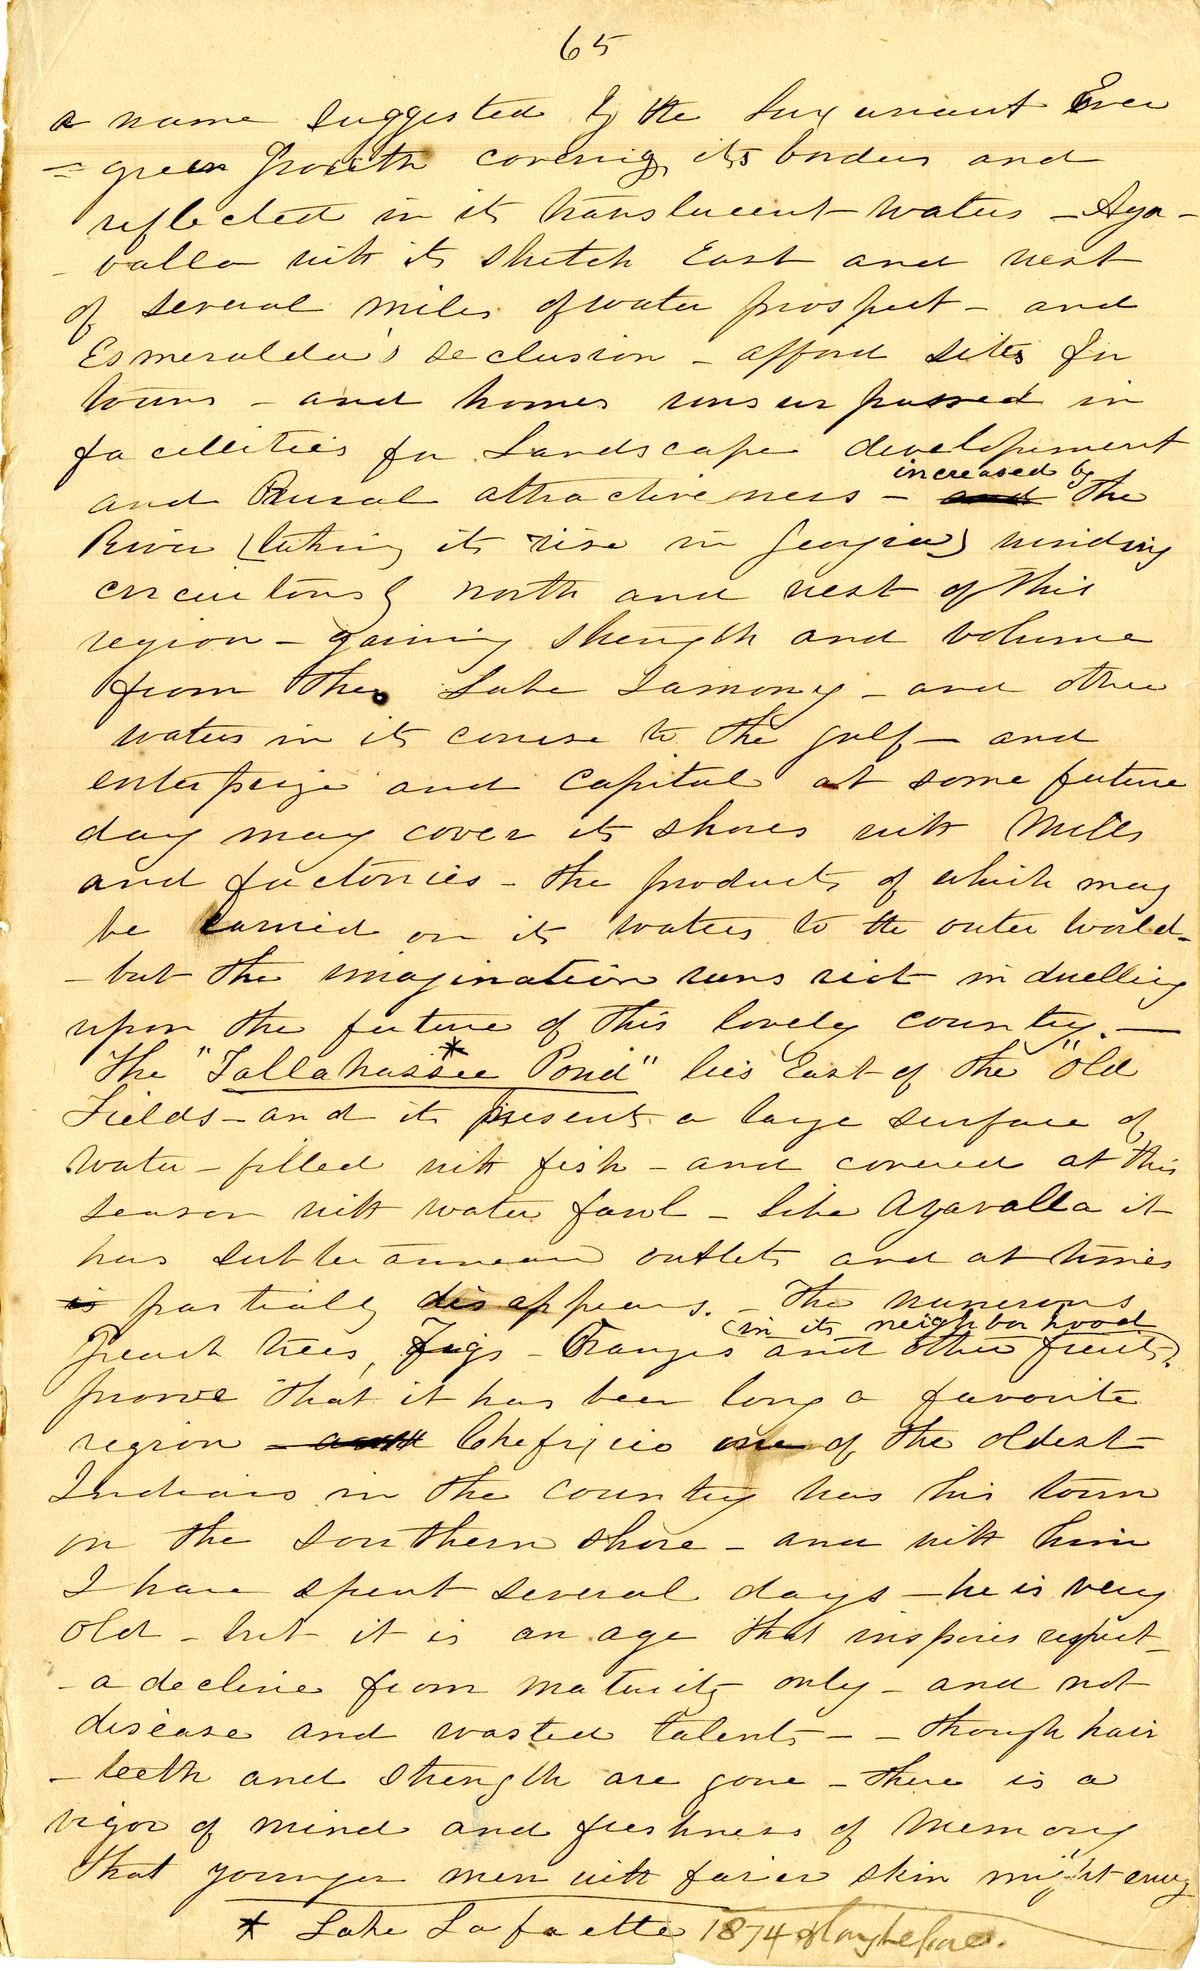 65
a name suggested by the luxuriant Ever
= green growth covering its borders and
reflected in its translucent waters - Aya -
- valla with its stretch East and west
of several miles of water prospect - and
Esmeralda's seclusion - afford sites for
towns - and homes unsurpassed in
facilities for Landscape development
increased by
and Rural attractiveness - and the
River (taking its rise in Georgia) winding
circuitously north and west of this
region - gaining strength and volume
from the Lake Iamony - and other
waters in its course to the gulf - and
enterprize and capital at some future
day may cover its shores with Mills
and factories - the products of which may
be carried on its waters to the outer world -
- but the imagination runs riot in dwelling
upon the future of this lovely country. —
The "Tallahassee Pond" lies East of the "Old
*
Fields - and it presents a large surface of
water - filled with fish - and covered at this
season with water fowl - like Ayavalla it
has subterannean outlets and at times
is partially disappears. - The numerous
(in its neighborhood
Peach trees, Figs - Oranges and other fruits).
prove that it has been long a favorite
region - Chefixico one of the oldest
Indians in the country has his town
on the southern shore - and with him
I have spent several days - he is very
old - but it is an age that inspires respect -
- a decline from maturity only - and not
disease and wasted talents - - though hair
- teeth and strength are gone - there is a
vigor of mind and freshness of Memory
that younger men with fairer skin might envy
* Lake Lafaette 1874 & long before.